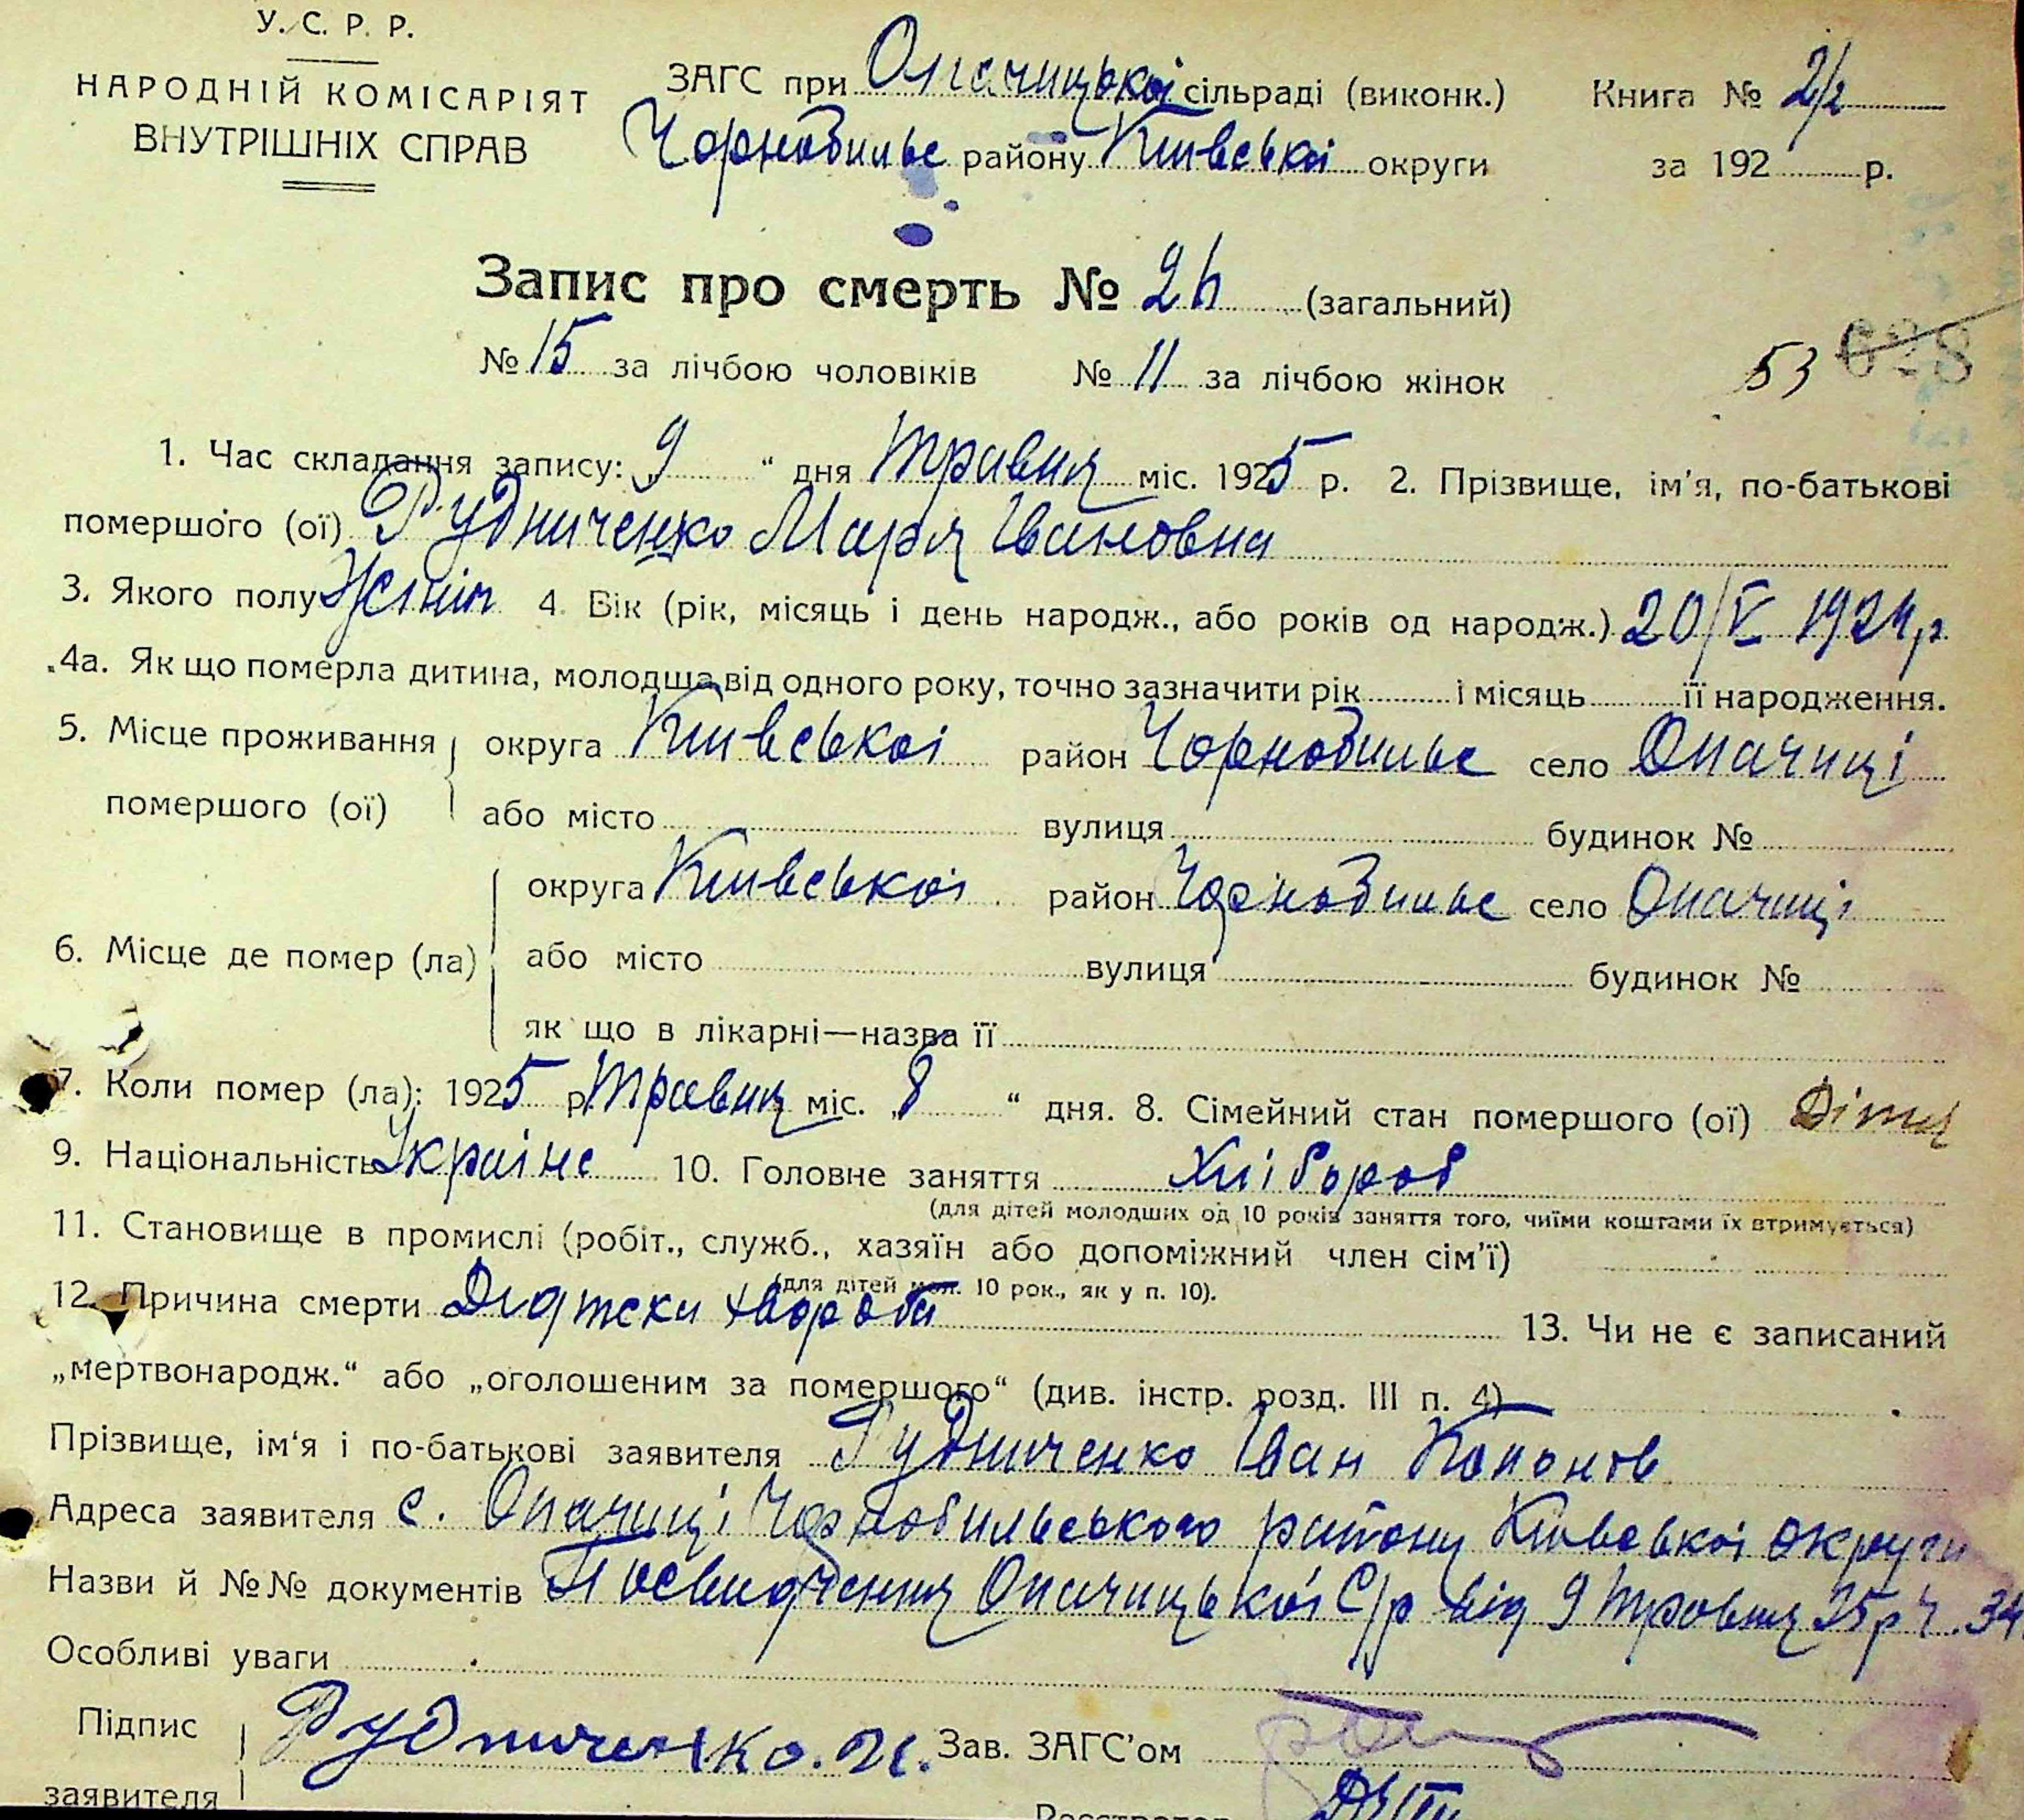 У. С. Р. Р.
НАРОДНІЙ КОМІСАРІЯТ
ВНУТРІШНІХ СПРАВ
ЗАГС при Опачицької сільраді (виконк.)
Чорнобильс району Київської округи
Книга № 2/2
за 192 р.
Запис про смерть № 26 (загальний)
№ 15 за лічбою чоловіків № 11 за лічбою жінок
53 628
1. Час складання запису: 9 “ дня травня міс. 1925 р. 2. Прізвище, ім'я, по-батькові
помершого (ої) Рудниченко Марія Івановна
3. Якого полу 4. Вік (рік, місяць і день народж., або років од народж.) 20/V 1924 р
4а. Як що померла дитина, молодша від одного року, точно зазначити рік і місяць її народження.
5. Місце проживання округа Київської район Чорнобильс село Опачиці
помершого (ої) або місто вулиця будинок №
округа Київської район Чорнобильс село Опачиці
6. Місце де помер (ла) або місто вулиця будинок №
як що в лікарні—назва її
7. Коли помер (ла): 1925 р. травня міс. „8 “ дня. 8. Сімейний стан помершого (ої) Дітя
9. Національність Україне 10. Головне заняття Хлібороб
(для дітей молодших од 10 років заняття того, чиїми коштами їх втримується)
11. Становище в промислі (робіт., служб., хазяїн або допоміжний член сім'ї)
(для дітей мол. 10 рок., як у п. 10).
12. Причина смерти Дятски хвороби 13. Чи не є записаний
„мертвонародж.“ або „оголошеним за помершого“ (див. інстр. розд. III п. 4) —
Прізвище, ім'я і по-батькові заявителя Рудниченко Іван Кононов
Адреса заявителя с. Опачиці Чорнобильського району Київської округи
Назви й №№ документів Посвидчення Опачицької С/р від 9 травня 25 р Ч. 34
Особливі уваги
Підпис Рудниченко. И. Зав. ЗАГС'ом
заявителя